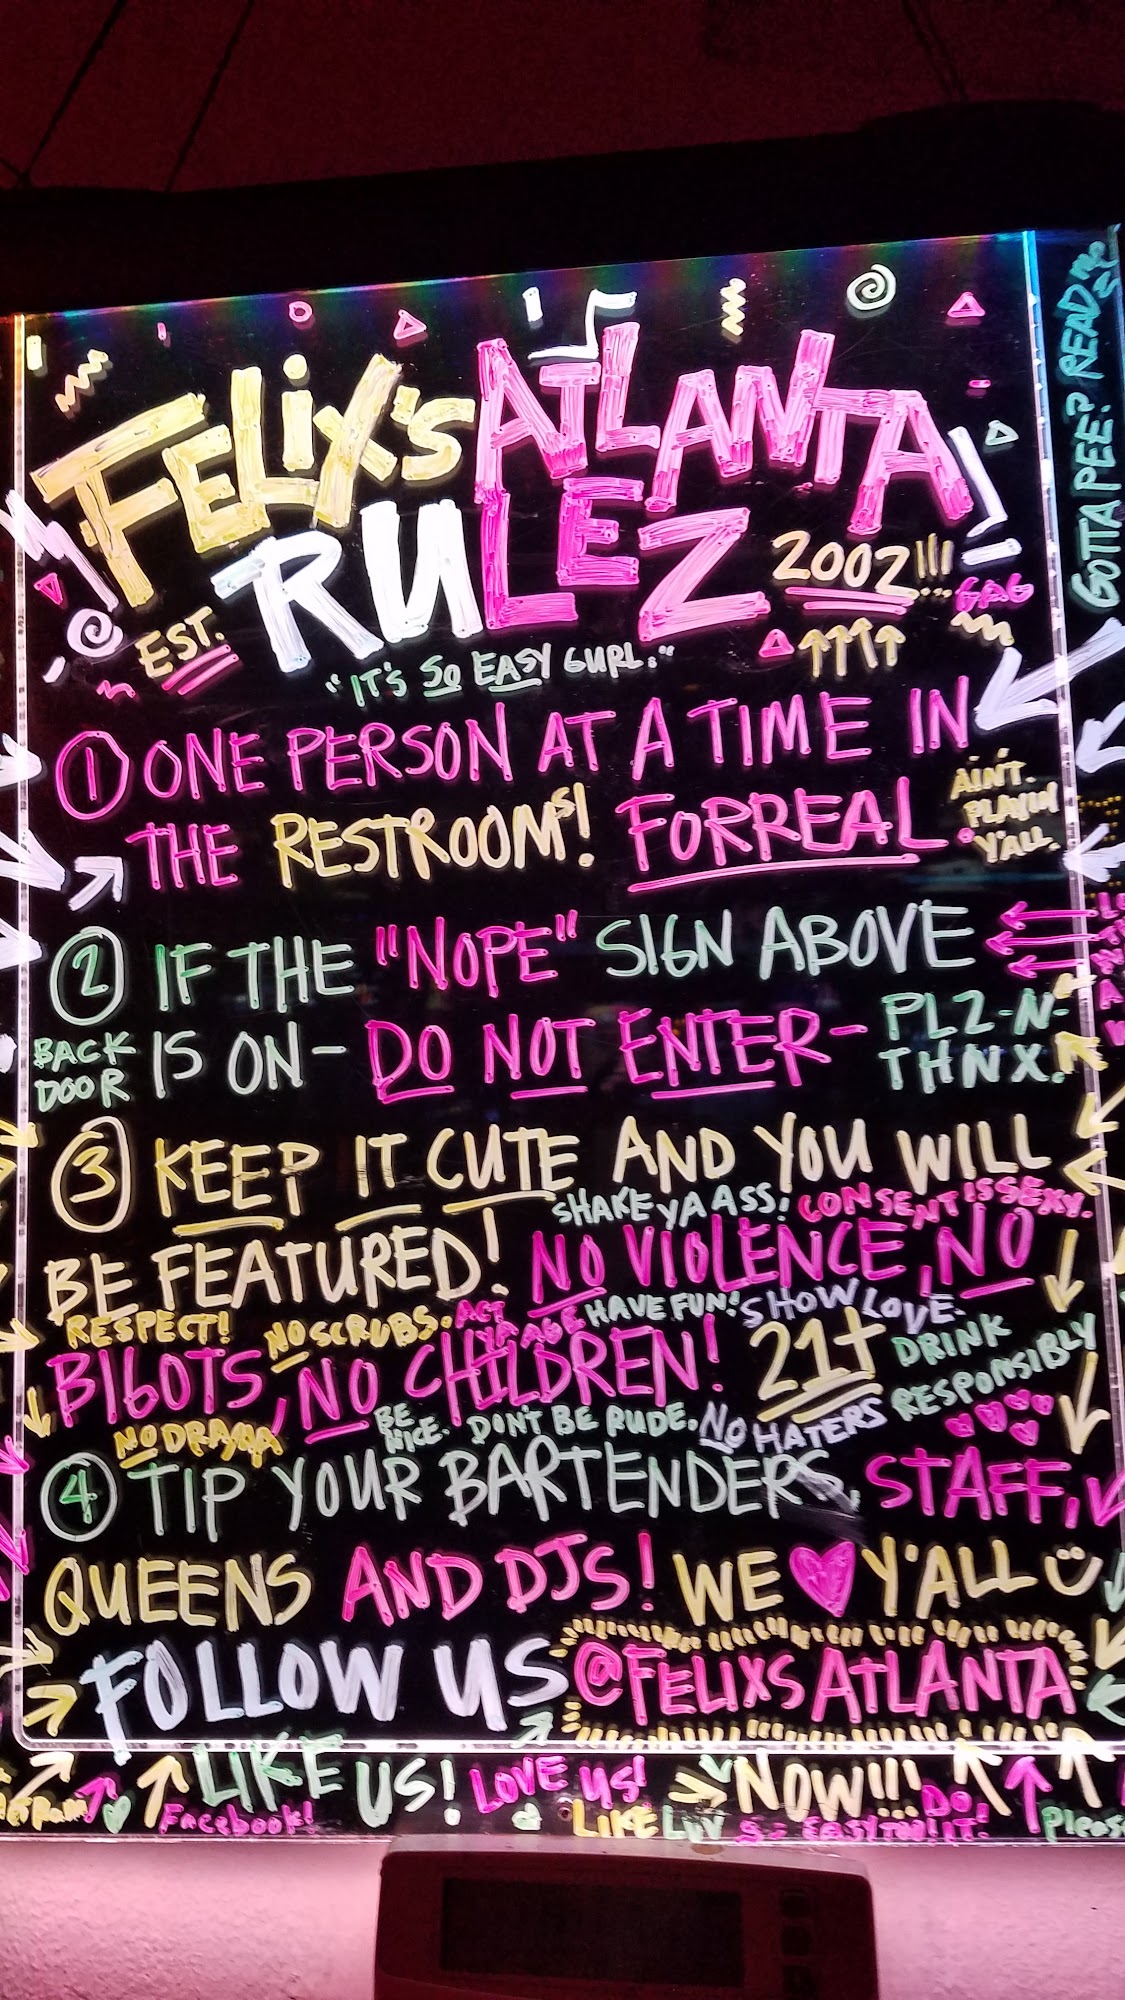 GOTTA PEE? READ ME
FELIX'S ATLANTA
RULEZ
EST. 2002!!!
GAG
"IT'S SO EASY GURL."
1 ONE PERSON AT A TIME IN
THE RESTROOMS! FORREAL.
AIN'T
PLAYIN
Y'ALL.
2 IF THE "NOPE" SIGN ABOVE
BACK DOOR IS ON- DO NOT ENTER- PLZ-N-THNX!
3 KEEP IT CUTE AND YOU WILL
SHAKE YA ASS! CONSENT IS SEXY.
BE FEATURED! NO VIOLENCE, NO
RESPECT! NO SCRUBS. ACT YA AGE HAVE FUN! SHOW LOVE.
BIGOTS, NO CHILDREN! 21+ DRINK RESPONSIBLY
NO DRAMA BE NICE. DON'T BE RUDE. NO HATERS
4 TIP YOUR BARTENDERS, STAFF,
QUEENS AND DJS! WE ♥ Y'ALL
FOLLOW US @FELIXSATLANTA
LIKE US! LOVE US! NOW!!!
Facebook! LIKE LUV SO EASY TOO! DO IT! Please